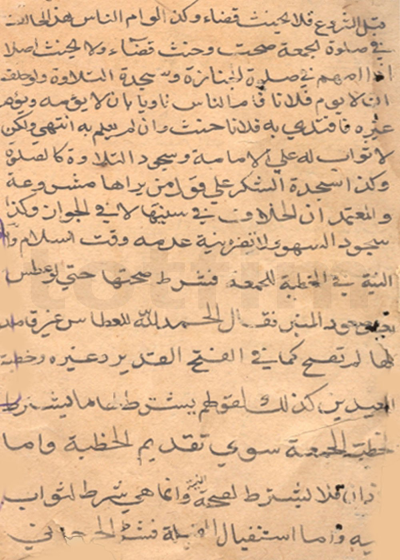 قبل الشروع فلا يحنث قضاء وكذا لو ام الناس هذا الحالف
في صلوة الجمعة صحت وحنث قضاء ولا يحنث اصلا
اذا امهم في صلوة الجنازة وسجدة التلاوة ولو حلف
ان لا يؤم فلانا فام الناس ناويا ان لا يؤمه ويؤم
غيره فاقتدى به فلانا حنث وان لم يعلم به انتهى ولكن
لا ثواب له على الامامة وسجود التلاوة كالصلوة
وكذا سجدة الشكر على قول من يراها مشروعة
والمعتمد ان الخلاف في سنيتها لا في الجواز وكذا
سجود السهو ولا تضره نية عدمه وقت السلام واما
النية في الخطبة للجمعة فشرط صحتها حتى لو عطس
بعد صعود المنبر فقال الحمد لله للعطاس غير قاصد
لها لم تصح كما في الفتح القدير وغيره وخطبة
العيدين كذلك لقولهم يشترط لها ما يشترط
لخطبة الجمعة سوى تقديم الخطبة واما
الاذان فلا يشترط لصحته النية وانما هي شرط للثواب
به واما استقبال القبلة فشرط الجرجاني